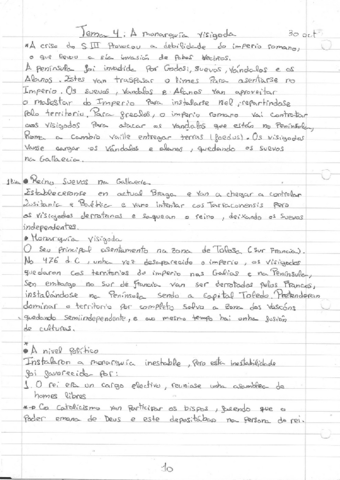 Tema 4: A monarquía visigoda 30 oct
• A crise do S.III provocou a debilidade do imperio romano,
o que levou a súa invasión de Pobos veciños.
A península foi invadida por Godos, Suevos, Vándalos e os
Alanos. Estes van traspasar o limes para asentarse no
Imperio. Os suevos, Vándalos e Alanos van aproveitar
o malestar do Imperio Para instalarse nel, repartíndose
polo territorio, Para frealos, o imperio romano vai contratar
aos visigodos Para atacar os Vándalos que están na Península,
Roma a cambio vaille entregar terras (foedus). Os visigodos
vanse cargar os Vándalos e alanos, quedando os suevos
na Gallaecia.
• Reino Suevos na Gallaecia
Establecéronse en actual Braga e van a chegar a controlar
Lusitania e Baética e varo intentar cos Tarraconensis pero
os visigodos derrotanos e saquean o reino, deixando os suevos
independentes.
• Monarquía visigoda
O seu principal asentamento na zona de Tolosa (Sur Francia).
No 476 d.C, unha vez desaparecido o imperio, os visigodos
quedaron cos territorios do imperio nas Galias e na Península,
sen embargo no Sur de Francia van ser derrotados polos Francos,
instalándose na Península sendo a capital Toledo. Pretenderon
dominar o territorio por completo salvo a zona dos Vascóns
quedando semiindependente, e ao mesmo tempo hai unha fusión
de culturas.
• A nivel Político
Instalaron a monarquía inestable, Pero esta inestabilidade
foi favorecida por:
1. O rei era un cargo electivo, reuníase unha asemblea de
homes libres.
*→ Co catolicismo van participar os bispos, facendo que o
Poder emana de Deus e este depositábao na persoa do rei.
10